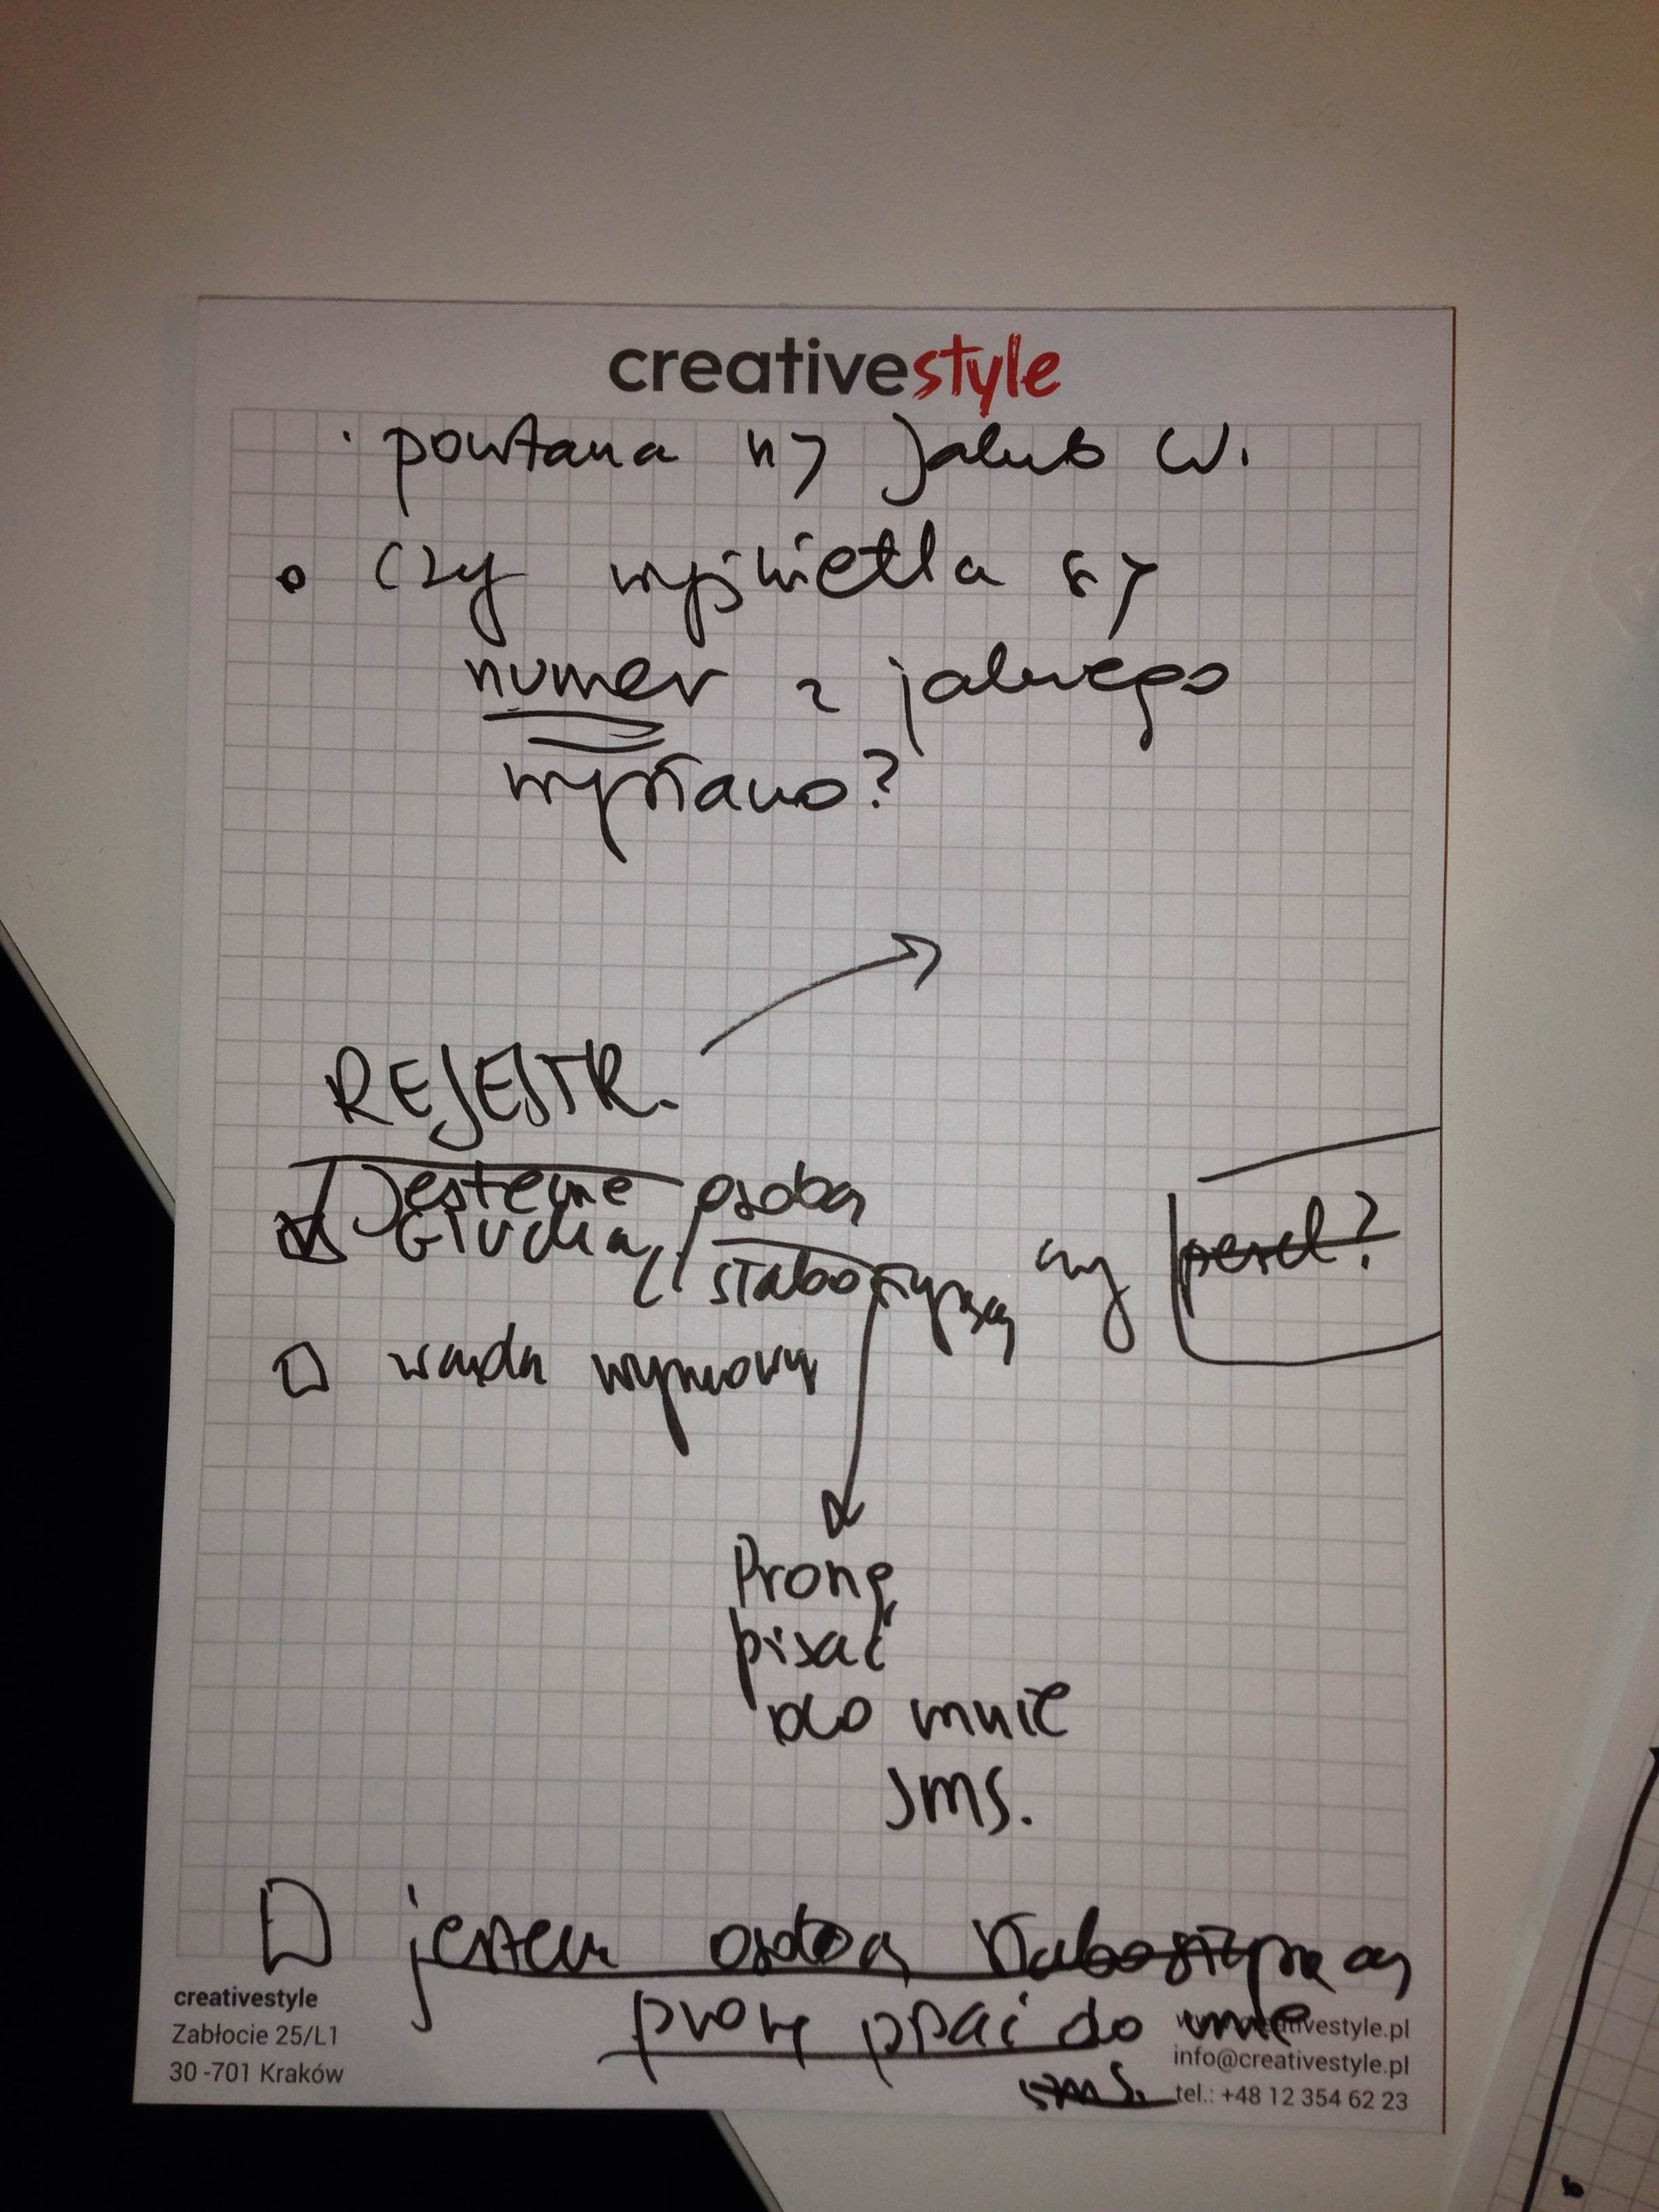 creativestyle
· powtarza się Jakub W.
• czy wyświetla się
numer z jakiego
wysłano?
REJESTR.
Jestem osobą
Głuchą / słabosłyszącą czy pesel?
wada wymowy
Proszę
pisać
do mnie
SMS.
jestem osobą słabosłyszącą
proszę pisać do mnie
sms.
creativestyle
Zabłocie 25/L1
30 -701 Kraków
www.creativestyle.pl
info@creativestyle.pl
tel.: +48 12 354 62 23